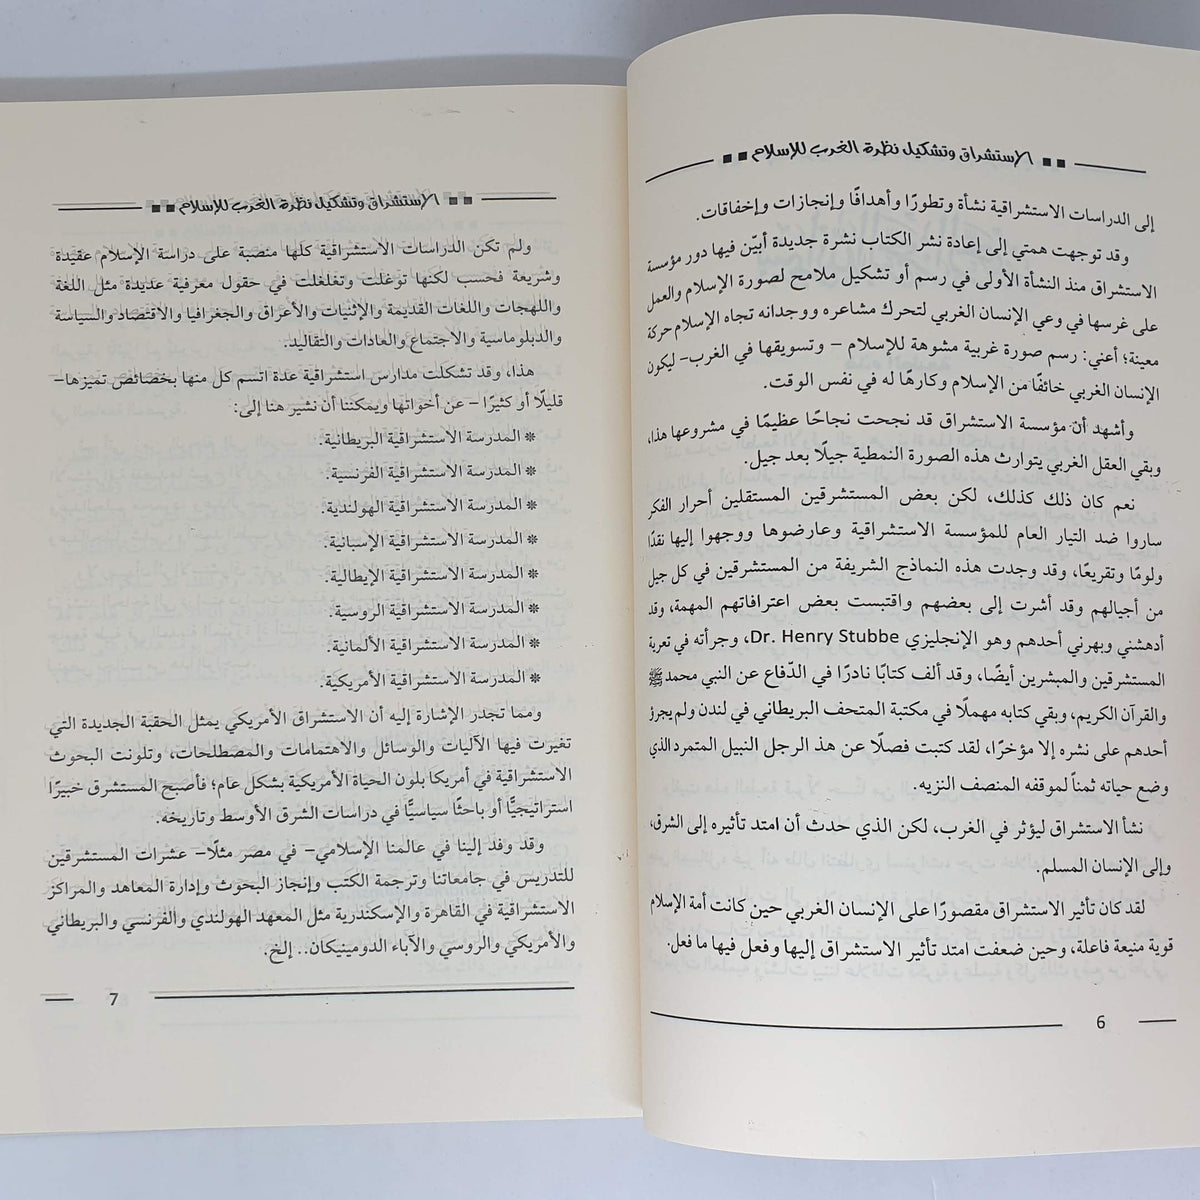 الاستشراق وتشكيل نظرة الغرب للإسلام
إلى الدراسات الاستشراقية نشأة وتطورًا وأهدافًا وإنجازات وإخفاقات.
وقد توجهت همتي إلى إعادة نشر الكتاب نشرة جديدة أبيّن فيها دور مؤسسة
الاستشراق منذ النشأة الأولى في رسم أو تشكيل ملامح لصورة الإسلام والعمل
على غرسها في وعي الإنسان الغربي لتحرك مشاعره ووجدانه تجاه الإسلام حركة
معينة؛ أعني: رسم صورة غربية مشوهة للإسلام – وتسويقها في الغرب– ليكون
الإنسان الغربي خائفًا من الإسلام وكارهًا له في نفس الوقت.
وأشهد أن مؤسسة الاستشراق قد نجحت نجاحًا عظيمًا في مشروعها هذا،
وبقي العقل الغربي يتوارث هذه الصورة النمطية جيلًا بعد جيل.
نعم كان ذلك كذلك، لكن بعض المستشرقين المستقلين أحرار الفكر
ساروا ضد التيار العام للمؤسسة الاستشراقية وعارضوها ووجهوا إليها نقدًا
ولومًا وتقريعًا، وقد وجدت هذه النماذج الشريفة من المستشرقين في كل جيل
من أجيالهم وقد أشرت إلى بعضهم واقتبست بعض اعترافاتهم المهمة، وقد
أدهشني وبهرني أحدهم وهو الإنجليزي Dr. Henry Stubbe، وجرأته في تعرية
المستشرقين والمبشرين أيضًا، وقد ألف كتابًا نادرًا في الدّفاع عن النبي محمد ﷺ
والقرآن الكريم، وبقي كتابه مهملًا في مكتبة المتحف البريطاني في لندن ولم يجرؤ
أحدهم على نشره إلا مؤخرًا، لقد كتبت فصلًا عن هذ الرجل النبيل المتمرد الذي
وضع حياته ثمناً لموقفه المنصف النزيه.
نشأ الاستشراق ليؤثر في الغرب، لكن الذي حدث أن امتد تأثيره إلى الشرق،
وإلى الإنسان المسلم.
لقد كان تأثير الاستشراق مقصورًا على الإنسان الغربي حين كانت أمة الإسلام
قوية منيعة فاعلة، وحين ضعفت امتد تأثير الاستشراق إليها وفعل فيها ما فعل.
6
الاستشراق وتشكيل نظرة الغرب للإسلام
ولم تكن الدراسات الاستشراقية كلها منصبة على دراسة الإسلام عقيدة
وشريعة فحسب لكنها توغلت وتغلغلت في حقول معرفية عديدة مثل اللغة
واللهجات واللغات القديمة والإثنيات والأعراق والجغرافيا والاقتصاد والسياسة
والدبلوماسية والاجتماع والعادات والتقاليد.
هذا، وقد تشكلت مدارس استشراقية عدة اتسم كل منها بخصائص تميزها–
قليلًا أو كثيرًا – عن أخواتها ويمكننا أن نشير هنا إلى:
❊ المدرسة الاستشراقية البريطانية.
❊ المدرسة الاستشراقية الفرنسية.
❊ المدرسة الاستشراقية الهولندية.
❊ المدرسة الاستشراقية الإسبانية.
❊ المدرسة الاستشراقية الإيطالية.
❊ المدرسة الاستشراقية الروسية.
❊ المدرسة الاستشراقية الألمانية.
❊ المدرسة الاستشراقية الأمريكية.
ومما تجدر الإشارة إليه أن الاستشراق الأمريكي يمثل الحقبة الجديدة التي
تغيرت فيها الآليات والوسائل والاهتمامات والمصطلحات، وتلونت البحوث
الاستشراقية في أمريكا بلون الحياة الأمريكية بشكل عام؛ فأصبح المستشرق خبيرًا
استراتيجيًّا أو باحثًا سياسيًّا في دراسات الشرق الأوسط وتاريخه.
وقد وفد إلينا في عالمنا الإسلامي– في مصر مثلًا– عشرات المستشرقين
للتدريس في جامعاتنا وترجمة الكتب وإنجاز البحوث وإدارة المعاهد والمراكز
الاستشراقية في القاهرة والإسكندرية مثل المعهد الهولندي والفرنسي والبريطاني
والأمريكي والروسي والآباء الدومينيكان.. إلخ.
7